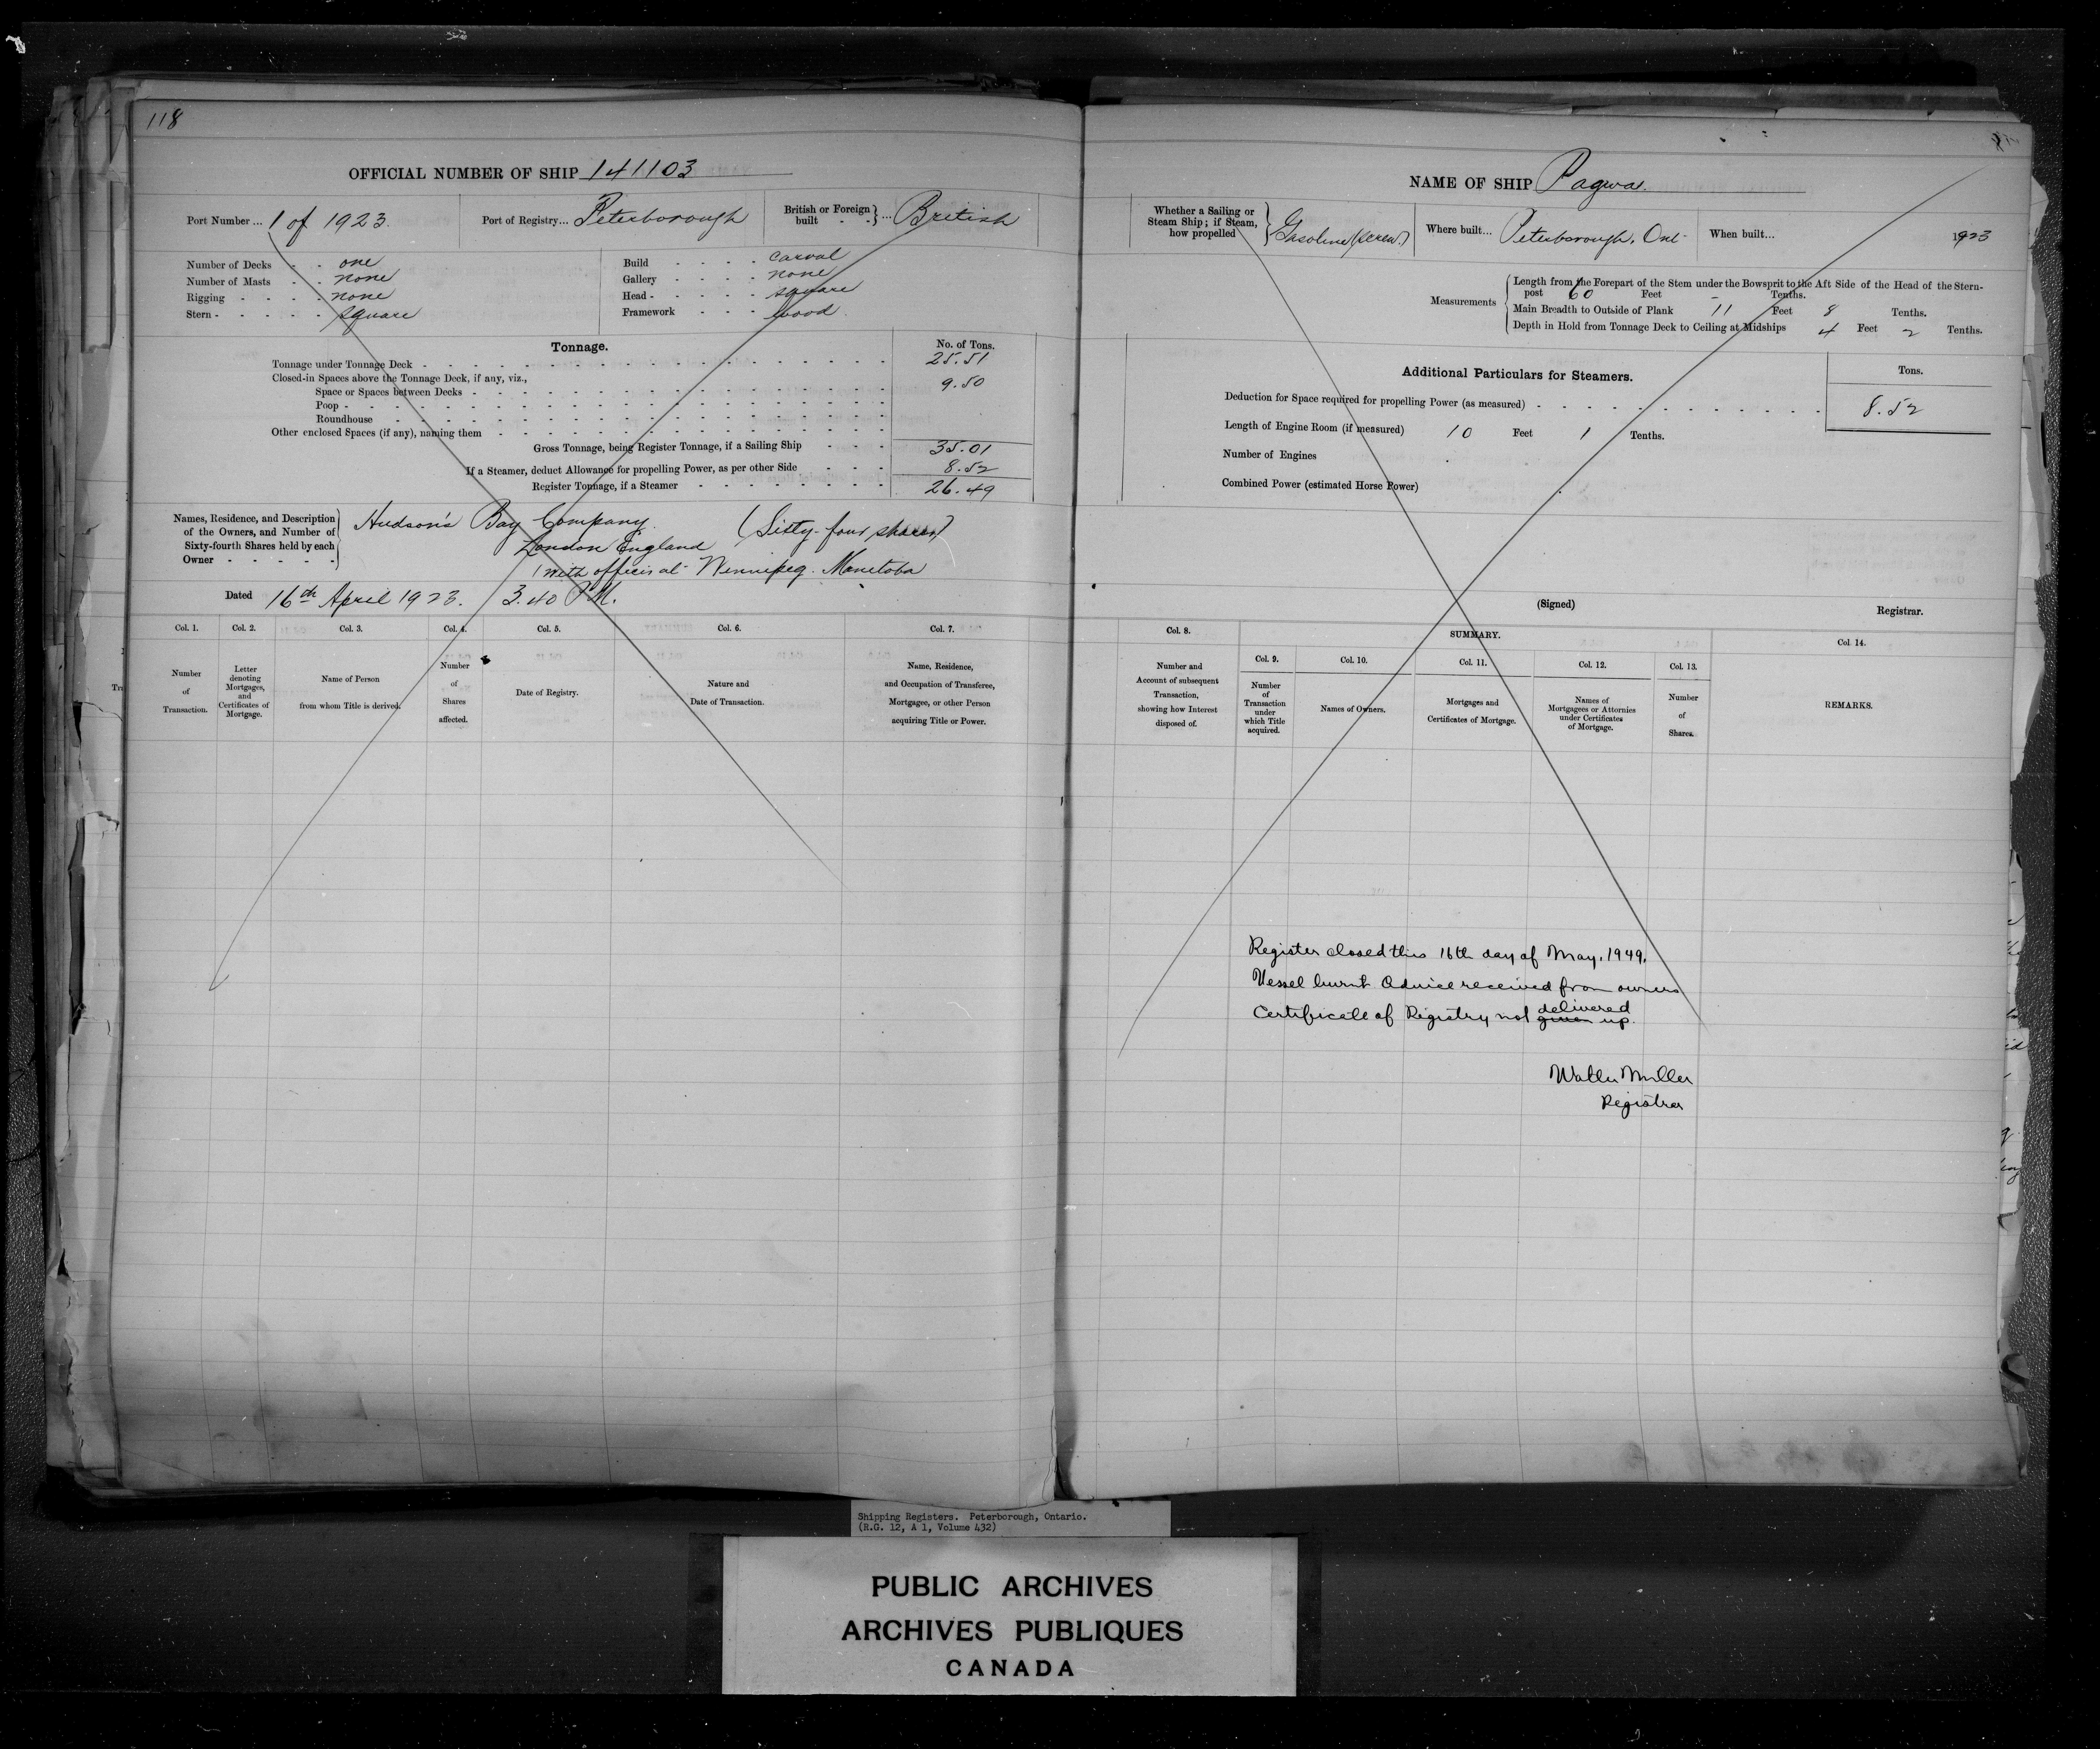 118
OFFICIAL NUMBER OF SHIP 141103
Port Number ... 1 of 1923.
Port of Registry... Peterborough
British or Foreign built - - } ... British
Number of Decks - - one
Number of Masts - - none
Rigging - - - - none
Stern - - - - - square
Build - - - - carval
Gallery - - - - none
Head - - - - - square
Framework - - - wood.
Tonnage.
No. of Tons.
Tonnage under Tonnage Deck - 25.51
Closed-in Spaces above the Tonnage Deck, if any, viz.,
Space or Spaces between Decks - 9.50
Poop -
Roundhouse -
Other enclosed Spaces (if any), naming them -
Gross Tonnage, being Register Tonnage, if a Sailing Ship - - - 35.01
If a Steamer, deduct Allowance for propelling Power, as per other Side - - - 8.52
Register Tonnage, if a Steamer - 26.49
Names, Residence, and Description of the Owners, and Number of Sixty-fourth Shares held by each Owner - - - - -
Hudson's Bay Company (Sixty-four shares)
London England
with offices at Winnipeg. Manitoba
Dated 16th April 1923. 3.40 P.M.
Col. 1.
Number of Transaction.
Col. 2.
Letter denoting Mortgages, and Certificates of Mortgage.
Col. 3.
Name of Person from whom Title is derived.
Col. 4.
Number of Shares affected.
Col. 5.
Date of Registry.
Col. 6.
Nature and Date of Transaction.
Col. 7.
Name, Residence, and Occupation of Transferee, Mortgagee, or other Person acquiring Title or Power.
NAME OF SHIP Pagwa.
Whether a Sailing or Steam Ship; if Steam, how propelled } Gasoline (screw.)
Where built... Peterborough, Ont.
When built... 1923
Measurements
Length from the Forepart of the Stem under the Bowsprit to the Aft Side of the Head of the Stern-
post 60 Feet - Tenths.
Main Breadth to Outside of Plank 11 Feet 8 Tenths.
Depth in Hold from Tonnage Deck to Ceiling at Midships 4 Feet 2 Tenths.
Additional Particulars for Steamers.
Tons.
Deduction for Space required for propelling Power (as measured) - 8.52
Length of Engine Room (if measured) 10 Feet 1 Tenths.
Number of Engines
Combined Power (estimated Horse Power)
(Signed) Registrar.
Col. 8.
Number and Account of subsequent Transaction, showing how Interest disposed of.
SUMMARY.
Col. 9.
Number of Transaction under which Title acquired.
Col. 10.
Names of Owners.
Col. 11.
Mortgages and Certificates of Mortgage.
Col. 12.
Names of Mortgagees or Attornies under Certificates of Mortgage.
Col. 13.
Number of Shares.
Col. 14.
REMARKS.
Register closed this 16th day of May, 1949.
Vessel burnt Advice received from owners
Certificate of Registry not given delivered up.
Walter Miller
Registrar
Shipping Registers. Peterborough, Ontario.
(R.G. 12, A 1, Volume 432)
PUBLIC ARCHIVES
ARCHIVES PUBLIQUES
CANADA